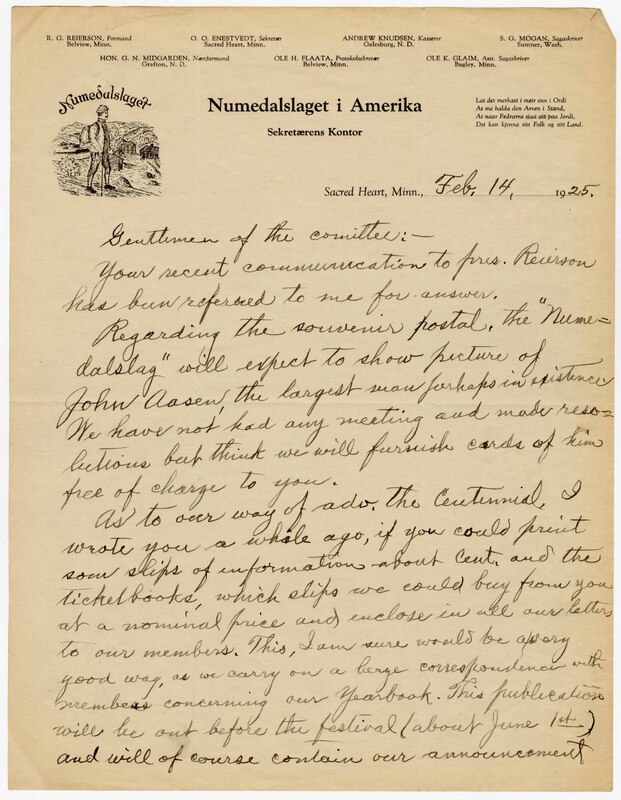 R. G. REIERSON, Formand
Belview, Minn.
O. O. ENESTVEDT, Sekretær
Sacred Heart, Minn.
ANDREW KNUDSEN, Kasserer
Galesburg, N. D.
S. G. MOGAN, Sagaskriver
Sumner, Wash.
HON. G. N. MIDGARDEN, Næstformand
Grafton, N. D.
OLE H. FLAATA, Protokolsekretær
Belview, Minn.
OLE K. GLAIM, Asst. Sagaskriver
Bagley, Minn.
Numedalslaget
Numedalslaget i Amerika
Sekretærens Kontor
Lat det merkast i meir enn i Ordi
At me halda den Arven i Stand,
At naar Fedrarne sjaa att paa Jordi,
Dei kan kjenna sitt Folk og sitt Land.
Sacred Heart, Minn., Feb. 14, 1925.
Gentlemen of the comittee:—
Your recent communication to pres. Reierson
has been referred to me for answer.
Regarding the souvenir postal, the "Nume-
dalslag" will expect to show picture of
John Aasen, the largest man perhaps in existence
We have not had any meeting and made reso-
lutions but think we will furnish cards of him
free of charge to you.
As to our way of adv. the Centennial, I
wrote you a while ago, if you could print
som slips of information about Cent. and the
ticketbooks, which slips we could buy from you
at a nominal price and enclose in all our letters
to our members. This, I am sure would be a very
good way, as we carry on a large correspondence with
members concerning our Yearbook. This publication
will be out before the festival (about June 1st)
and will of course contain our announcement